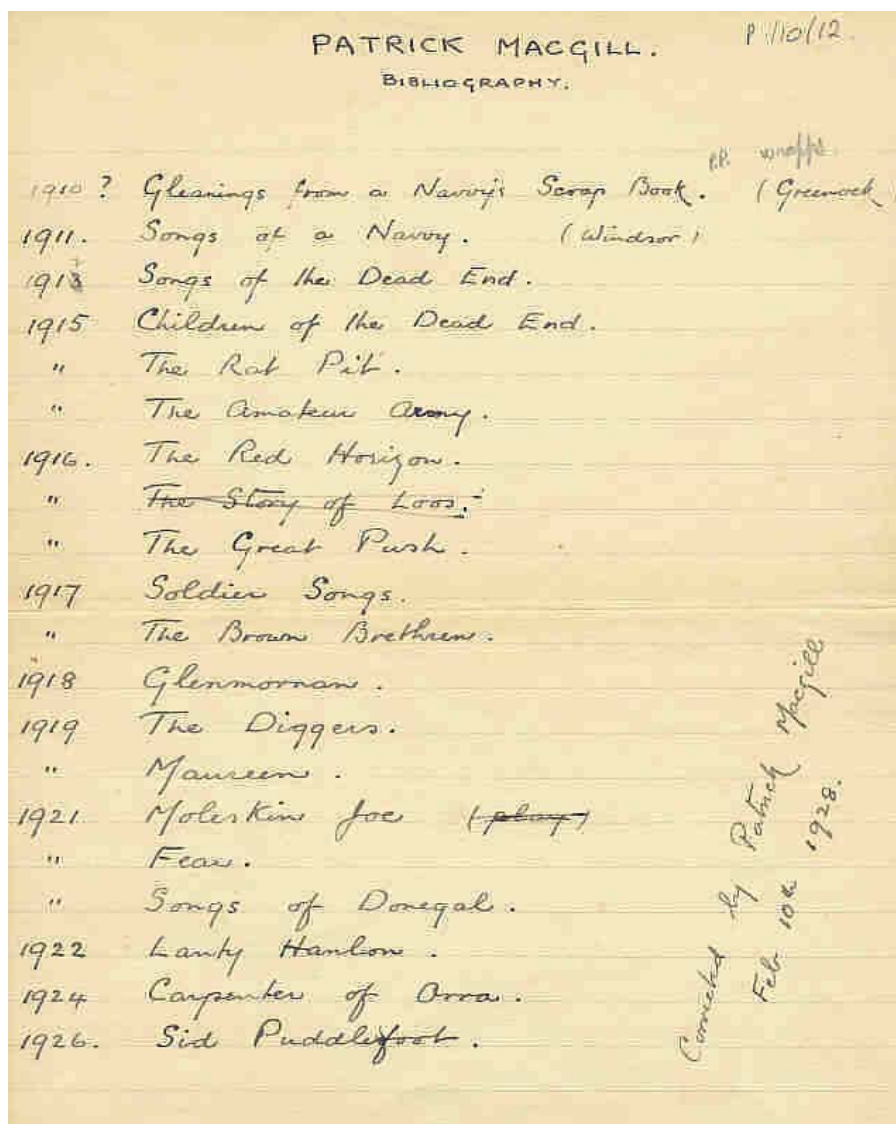 P /10/12.
PATRICK MACGILL.
BIBLIOGRAPHY.
P.P. wrapps.
1910 ? Gleanings from a Navvy's Scrap Book. (Greenock)
1911. Songs of a Navvy. (Windsor)
1913 Songs of the Dead End.
1915 Children of the Dead End.
" The Rat Pit.
" The Amateur Army.
1916. The Red Horizon.
" The Story of Loos.
" The Great Push.
1917 Soldier Songs.
" The Brown Brethren.
1918 Glenmornan.
1919 The Diggers.
" Maureen.
1921 Moleskin Joe (play)
" Fear.
" Songs of Donegal.
1922 Lanty Hanlon.
1924 Carpenter of Orra.
1926. Sid Puddlefoot.
Corrected by Patrick Macgill
Feb 10th 1928.